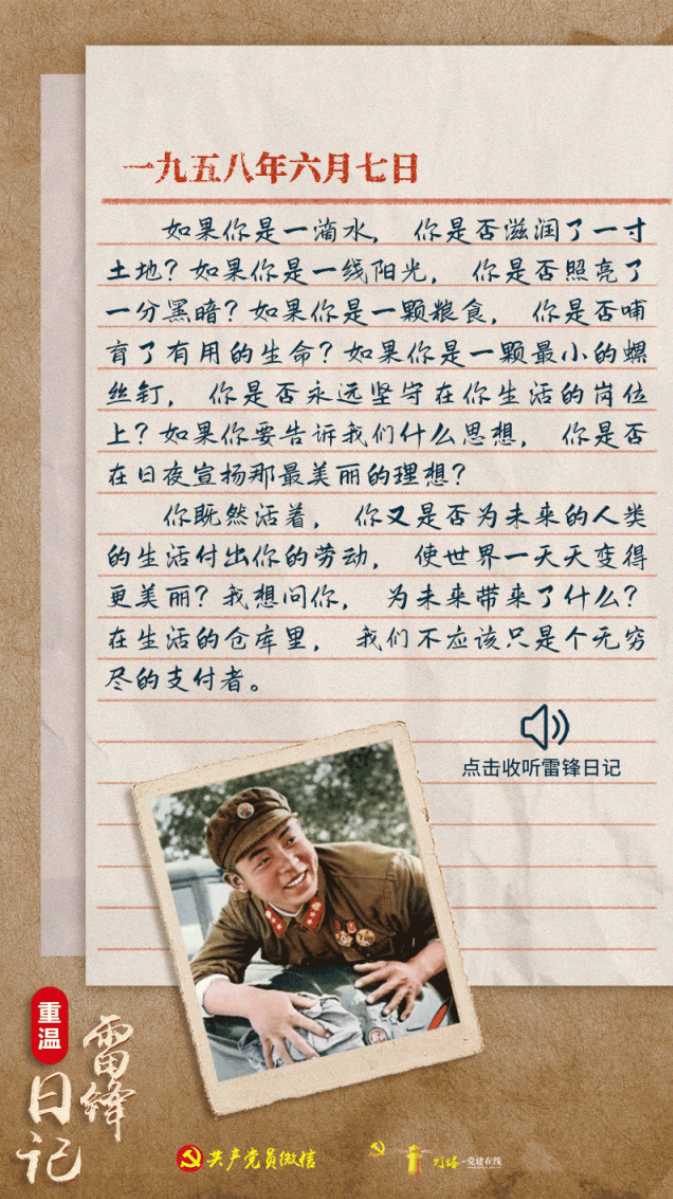 一九五八年六月七日
如果你是一滴水， 你是否滋润了一寸
土地？如果你是一线阳光， 你是否照亮了
一分黑暗？如果你是一颗粮食， 你是否哺
育了有用的生命？如果你是一颗最小的螺
丝钉， 你是否永远坚守在你生活的岗位
上？如果你要告诉我们什么思想， 你是否
在日夜宣扬那最美丽的理想？
你既然活着， 你又是否为未来的人类
的生活付出你的劳动， 使世界一天天变得
更美丽？我想问你， 为未来带来了什么？
在生活的仓库里， 我们不应该只是个无穷
尽的支付者。
点击收听雷锋日记
重温
雷锋
日记
共产党员微信
党建在线